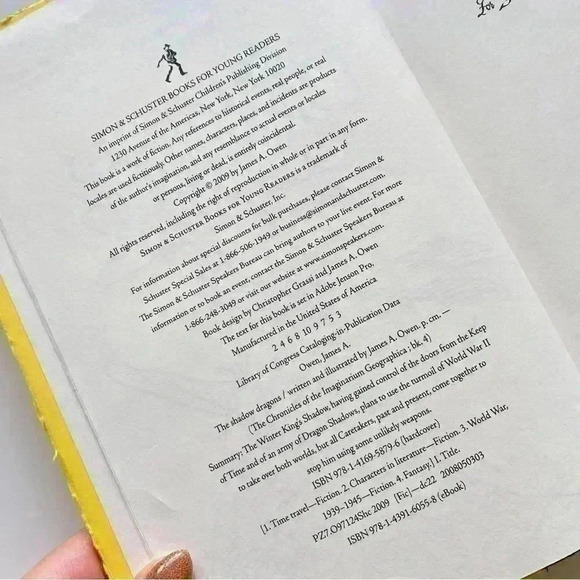 For
SIMON & SCHUSTER BOOKS FOR YOUNG READERS
An imprint of Simon & Schuster Children's Publishing Division
1230 Avenue of the Americas, New York, New York 10020
This book is a work of fiction. Any references to historical events, real people, or real
locales are used fictitiously. Other names, characters, places, and incidents are products
of the author's imagination, and any resemblance to actual events or locales
or persons, living or dead, is entirely coincidental.
Copyright © 2009 by James A. Owen
All rights reserved, including the right of reproduction in whole or in part in any form.
SIMON & SCHUSTER BOOKS FOR YOUNG READERS is a trademark of
Simon & Schuster, Inc.
For information about special discounts for bulk purchases, please contact Simon &
Schuster Special Sales at 1-866-506-1949 or business@simonandschuster.com.
The Simon & Schuster Speakers Bureau can bring authors to your live event. For more
information or to book an event, contact the Simon & Schuster Speakers Bureau at
1-866-248-3049 or visit our website at www.simonspeakers.com.
Book design by Christopher Grassi and James A. Owen
The text for this book is set in Adobe Jenson Pro.
Manufactured in the United States of America
2 4 6 8 10 9 7 5 3
Library of Congress Cataloging-in-Publication Data
Owen, James A.
The shadow dragons / written and illustrated by James A. Owen. p. cm. —
(The Chronicles of the Imaginarium Geographica ; bk. 4)
Summary: The Winter King's Shadow, having gained control of the doors from the Keep
of Time and of an army of Dragon Shadows, plans to use the turmoil of World War II
to take over both worlds, but all Caretakers, past and present, come together to
stop him using some unlikely weapons.
ISBN 978-1-4169-5879-6 (hardcover)
[1. Time travel—Fiction. 2. Characters in literature—Fiction. 3. World War,
1939–1945—Fiction. 4. Fantasy.] I. Title.
PZ7.O97124Shc 2009 [Fic]—dc22 2008050303
ISBN 978-1-4391-6055-8 (eBook)